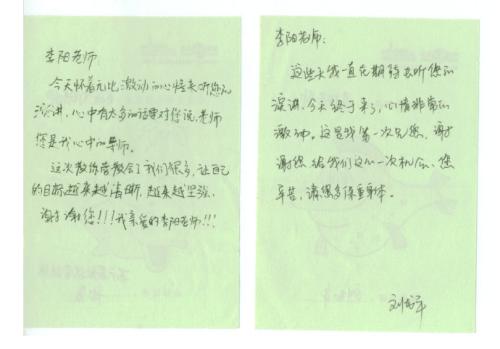 李阳老师
今天怀着无比激动的心情来听您的
演讲，心中有太多的话要对您说，老师
您是我心中的导师。
这次教练营教会了我们很多，让自己
的目标越来越清晰，越来越坚强，
谢谢您!!!我亲爱的李阳老师!!!
李阳老师：
这些天我一直在期待去听您的
演讲，今天终于来了，心情非常的
激动。这是我第一次见您，谢
谢您给我们这一次机会，您
辛苦，请您多保重身体。